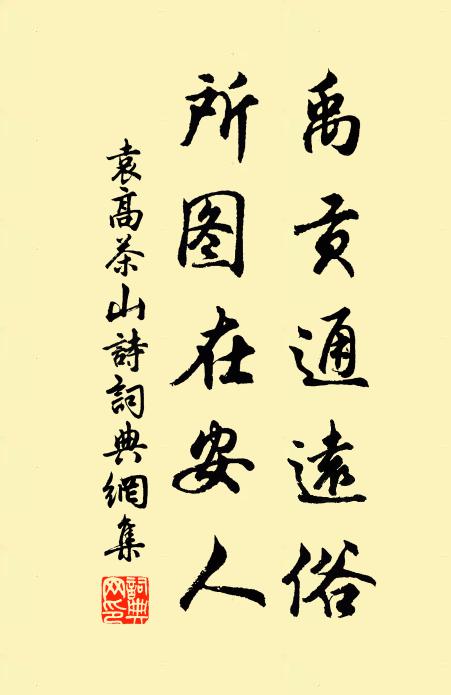 禹贡通遠俗
所图在安人
袁高茶山詩詞典網集
詞典網印